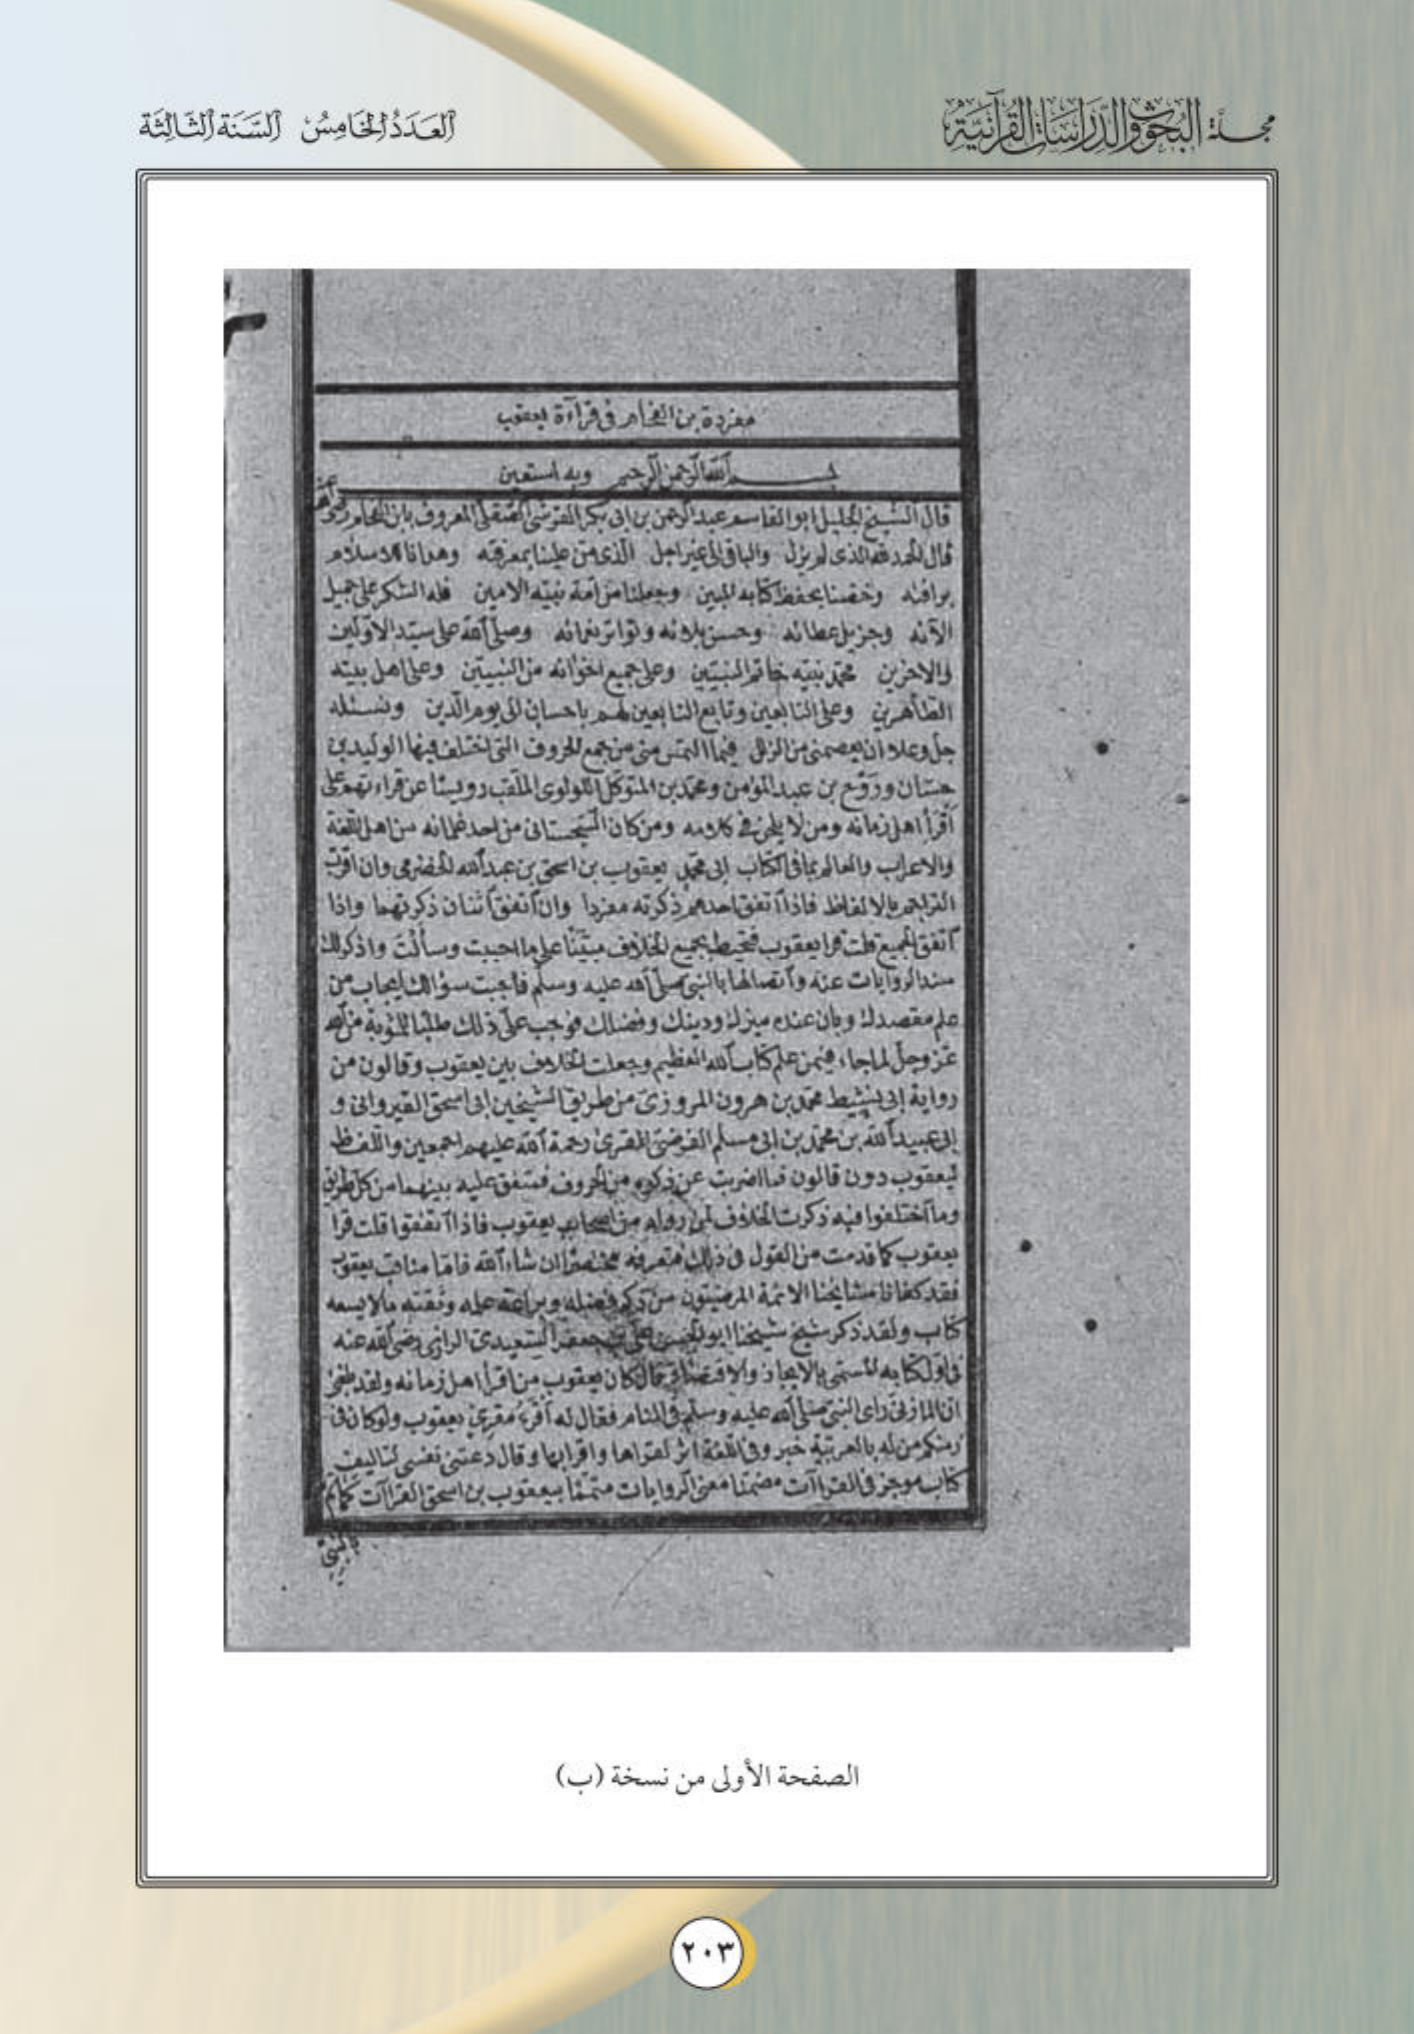 مجلة البحوث والدراسات القرآنية
العدد الخامس السنة الثالثة
مفردة بن الفحام فى قرآءة يعقوب
بسم الله الرحمن الرحيم وبه استعين
قال الشيخ الجليل ابو القاسم عبد الرحمن بن ابى بكر القرشى الصقلى المعروف بابن الفحام
قال الحمد لله الذى لم يزل والباقى الى غير اجل الذى من علينا بمعرفته وهدانا للاسلام
برافته وخصنا بحفظ كتابه المبين وجعلنا من امة نبيه الامين فله الشكر على جميل
الآئه وجزيل عطائه وحسن بلائه وتواتر نعمائه وصلى الله على سيد الاولين
والاخرين محمد نبيه خاتم النبيين وعلى جميع اخوانه من النبيين وعلى اهل بيته
الطاهرين وعلى التابعين وتابع التابعين لهم باحسان الى يوم الدين ونسئله
جل وعلا ان يعصمنى من الزلل فيما التمس منى من جمع الحروف التى اختلف فيها الوليد بن
حسان وروح بن عبد المؤمن ومحمد بن المتوكل اللولوى الملقب رويسا عن قراءتهم على
اقرأ اهل زمانه ومن لا يلحن فى كلامه ومن كان السجستانى من احد غلمانه من اهل اللغة
والاعراب والعالم بما فى الكتاب ابى محمد يعقوب بن اسحق بن عبد الله الحضرمى وان اقرب
بالالفاظ فاذا اتفق احدهم ذكرته مفردا وان اتفق اثنان ذكرتهما واذا
اتفق الجميع قلت قرا يعقوب فتحيط بجميع الخلاف مبينا على ما احببت وسألت واذكر لك
سند الروايات عنه واتصالها بالنبى صلى الله عليه وسلم فاجبت سؤالك ايجاب من
علم مقصدك وبان عنده ميزك ودينك وفضلك فوجب على ذلك طلبا للمثوبة من الله
عز وجل لما جاء فيمن علم كتاب الله العظيم وجعلت الخلاف بين يعقوب وقالون من
رواية ابى نشيط محمد بن هرون المروزى من طريق الشيخين ابى اسحق القيروانى و
ابى عبيد الله بن محمد بن ابى مسلم الفرضى المقرى رحمة الله عليهم اجمعين واللفظ
ليعقوب دون قالون فما اضربت عن ذكره من الحروف فمتفق عليه بينهما من كل طريق
وما اختلفوا فيه ذكرت الخلاف لمن رواه من اصحاب يعقوب فاذا اتفقوا قلت قرا
يعقوب كما قدمت من القول فى ذلك فتعرفه مختصرا ان شاء الله فاما مناقب يعقوب
فقد كفانا مشايخنا الائمة المرضيتون من ذكر فضله وبراعة علمه وثقته ما لا يسعه
كتاب ولقد ذكر شيخ شيخنا ابو الحسن على بن جعفر السعيدى الرازى رضى الله عنه
فى اول كتابه المسمى بالايجاز والاقتصار قال كان يعقوب من اقرأ اهل زمانه ولقد بلغنى
ان المازنى راى النبى صلى الله عليه وسلم فى المنام فقال له اقرء مقرئ يعقوب ولو كان فى
زمنكم من له بالعربية خبر وفى اللغة اثر لقراها واقرابها وقال دعتنى نفسى لتاليف
كتاب موجز فى القراآت مضمنا معنى الروايات متمما بيعقوب بن اسحق القراآت
الصفحة الأولى من نسخة (ب)
٢٠٣